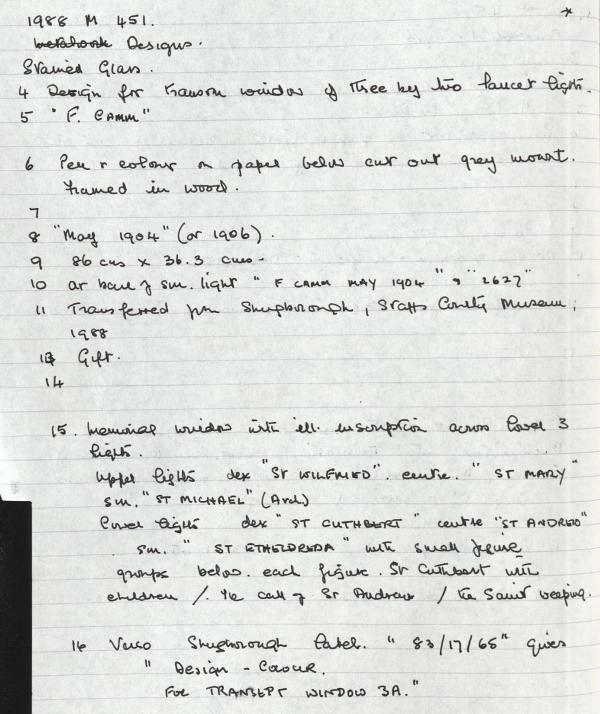 *
1988 M 451.
Designs.
Stained Glass.
4 Design for transom window of three by two faucet lights.
5 "F. CAMM"
6 Pen & colour on paper below cut out grey mount.
framed in wood.
7
8 "May 1904" (or 1906).
9 86 cms x 36.3 cms.
10 at base of sin. light "F CAMM MAY 1904" & "2627"
11 Transferred from Shugborough, Staffs County Museum,
1988
13 Gift.
14
15. Memorial window with ill. inscription across lower 3
lights.
Upper lights dex "ST WILFRIED". centre. "ST MARY"
sin. "ST MICHAEL" (Arch)
Lower lights dex "ST CUTHBERT" centre "ST ANDREW"
sin. "ST ETHELDREDA" with small figure
groups below. each figure. St Cuthbert with
children /. the call of St Andrew / the Saint weeping.
16 Verso Shugborough label. "83/17/65" gives
" Design - Colour.
FOR TRANSEPT WINDOW 3A."